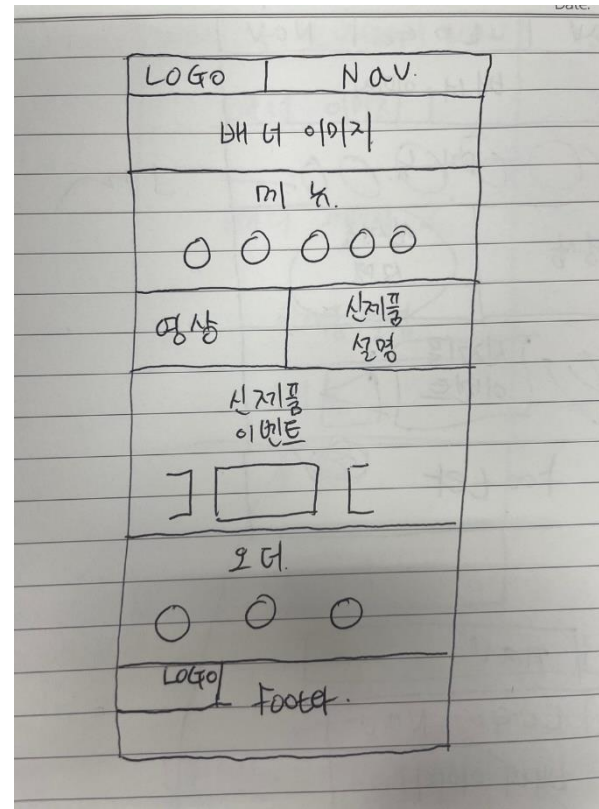 Date.
LOGO Nav.
배너 이미지
메뉴.
영상
신제품
설명
신제품
이벤트
오더.
LOGO
Footer.